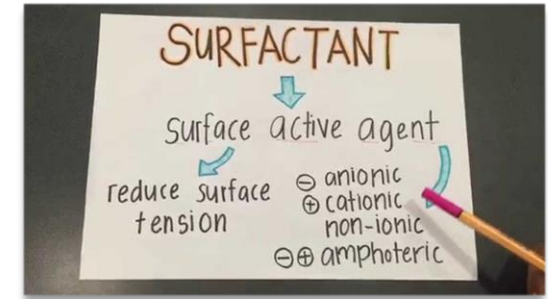 SURFACTANT
surface active agent
reduce surface
tension
⊖ anionic
⊕ cationic
non-ionic
⊖⊕ amphoteric